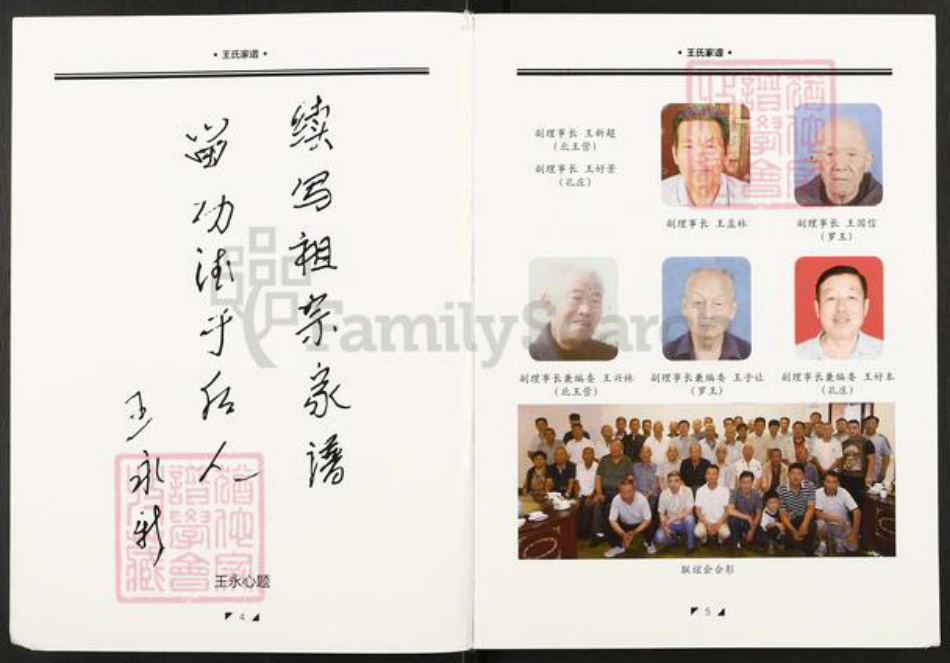 • 王氏家谱 •
续写祖宗家谱
留功德于后人
王永新
王永心题
4
• 王氏家谱 •
副理事长 王新超
（北王营）
副理事长 王好景
（孔庄）
副理事长 王孟林
副理事长 王国信
（罗王）
副理事长兼编委 王兴林
（北王营）
副理事长兼编委 王于让
（罗王）
副理事长兼编委 王好本
（孔庄）
联谊会合影
5
FamilySearch